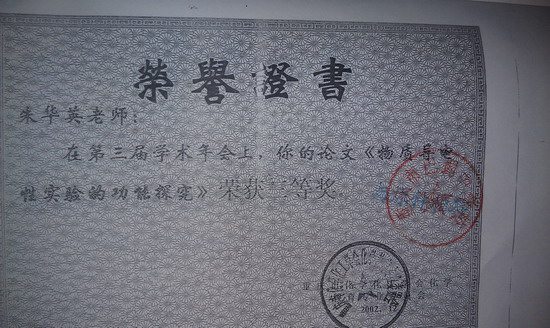 榮譽證書
朱华英老师:
在第三届学术年会上,你的论文《物质导电
性实验的功能探究》荣获三等奖.
2002.